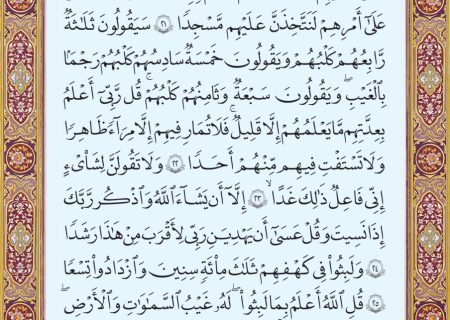 عَلَىٰٓ أَمْرِهِمْ لَنَتَّخِذَنَّ عَلَيْهِم مَّسْجِدًا ٢١ سَيَقُولُونَ ثَلَٰثَةٌ
رَّابِعُهُمْ كَلْبُهُمْ وَيَقُولُونَ خَمْسَةٌ سَادِسُهُمْ كَلْبُهُمْ رَجْمًۢا
بِٱلْغَيْبِۖ وَيَقُولُونَ سَبْعَةٌ وَثَامِنُهُمْ كَلْبُهُمْۚ قُل رَّبِّىٓ أَعْلَمُ
بِعِدَّتِهِم مَّا يَعْلَمُهُمْ إِلَّا قَلِيلٌۗ فَلَا تُمَارِ فِيهِمْ إِلَّا مِرَآءً ظَٰهِرًا
وَلَا تَسْتَفْتِ فِيهِم مِّنْهُمْ أَحَدًا ٢٢ وَلَا تَقُولَنَّ لِشَا۟ىْءٍ
إِنِّى فَاعِلٌ ذَٰلِكَ غَدًا ٢٣ إِلَّآ أَن يَشَآءَ ٱللَّهُۚ وَٱذْكُر رَّبَّكَ
إِذَا نَسِيتَ وَقُلْ عَسَىٰٓ أَن يَهْدِيَنِ رَبِّى لِأَقْرَبَ مِنْ هَٰذَا رَشَدًا
٢٤ وَلَبِثُوا۟ فِى كَهْفِهِمْ ثَلَٰثَ مِا۟ئَةٍ سِنِينَ وَٱزْدَادُوا۟ تِسْعًا
٢٥ قُلِ ٱللَّهُ أَعْلَمُ بِمَا لَبِثُوا۟ۖ لَهُۥ غَيْبُ ٱلسَّمَٰوَٰتِ وَٱلْأَرْضِۖ